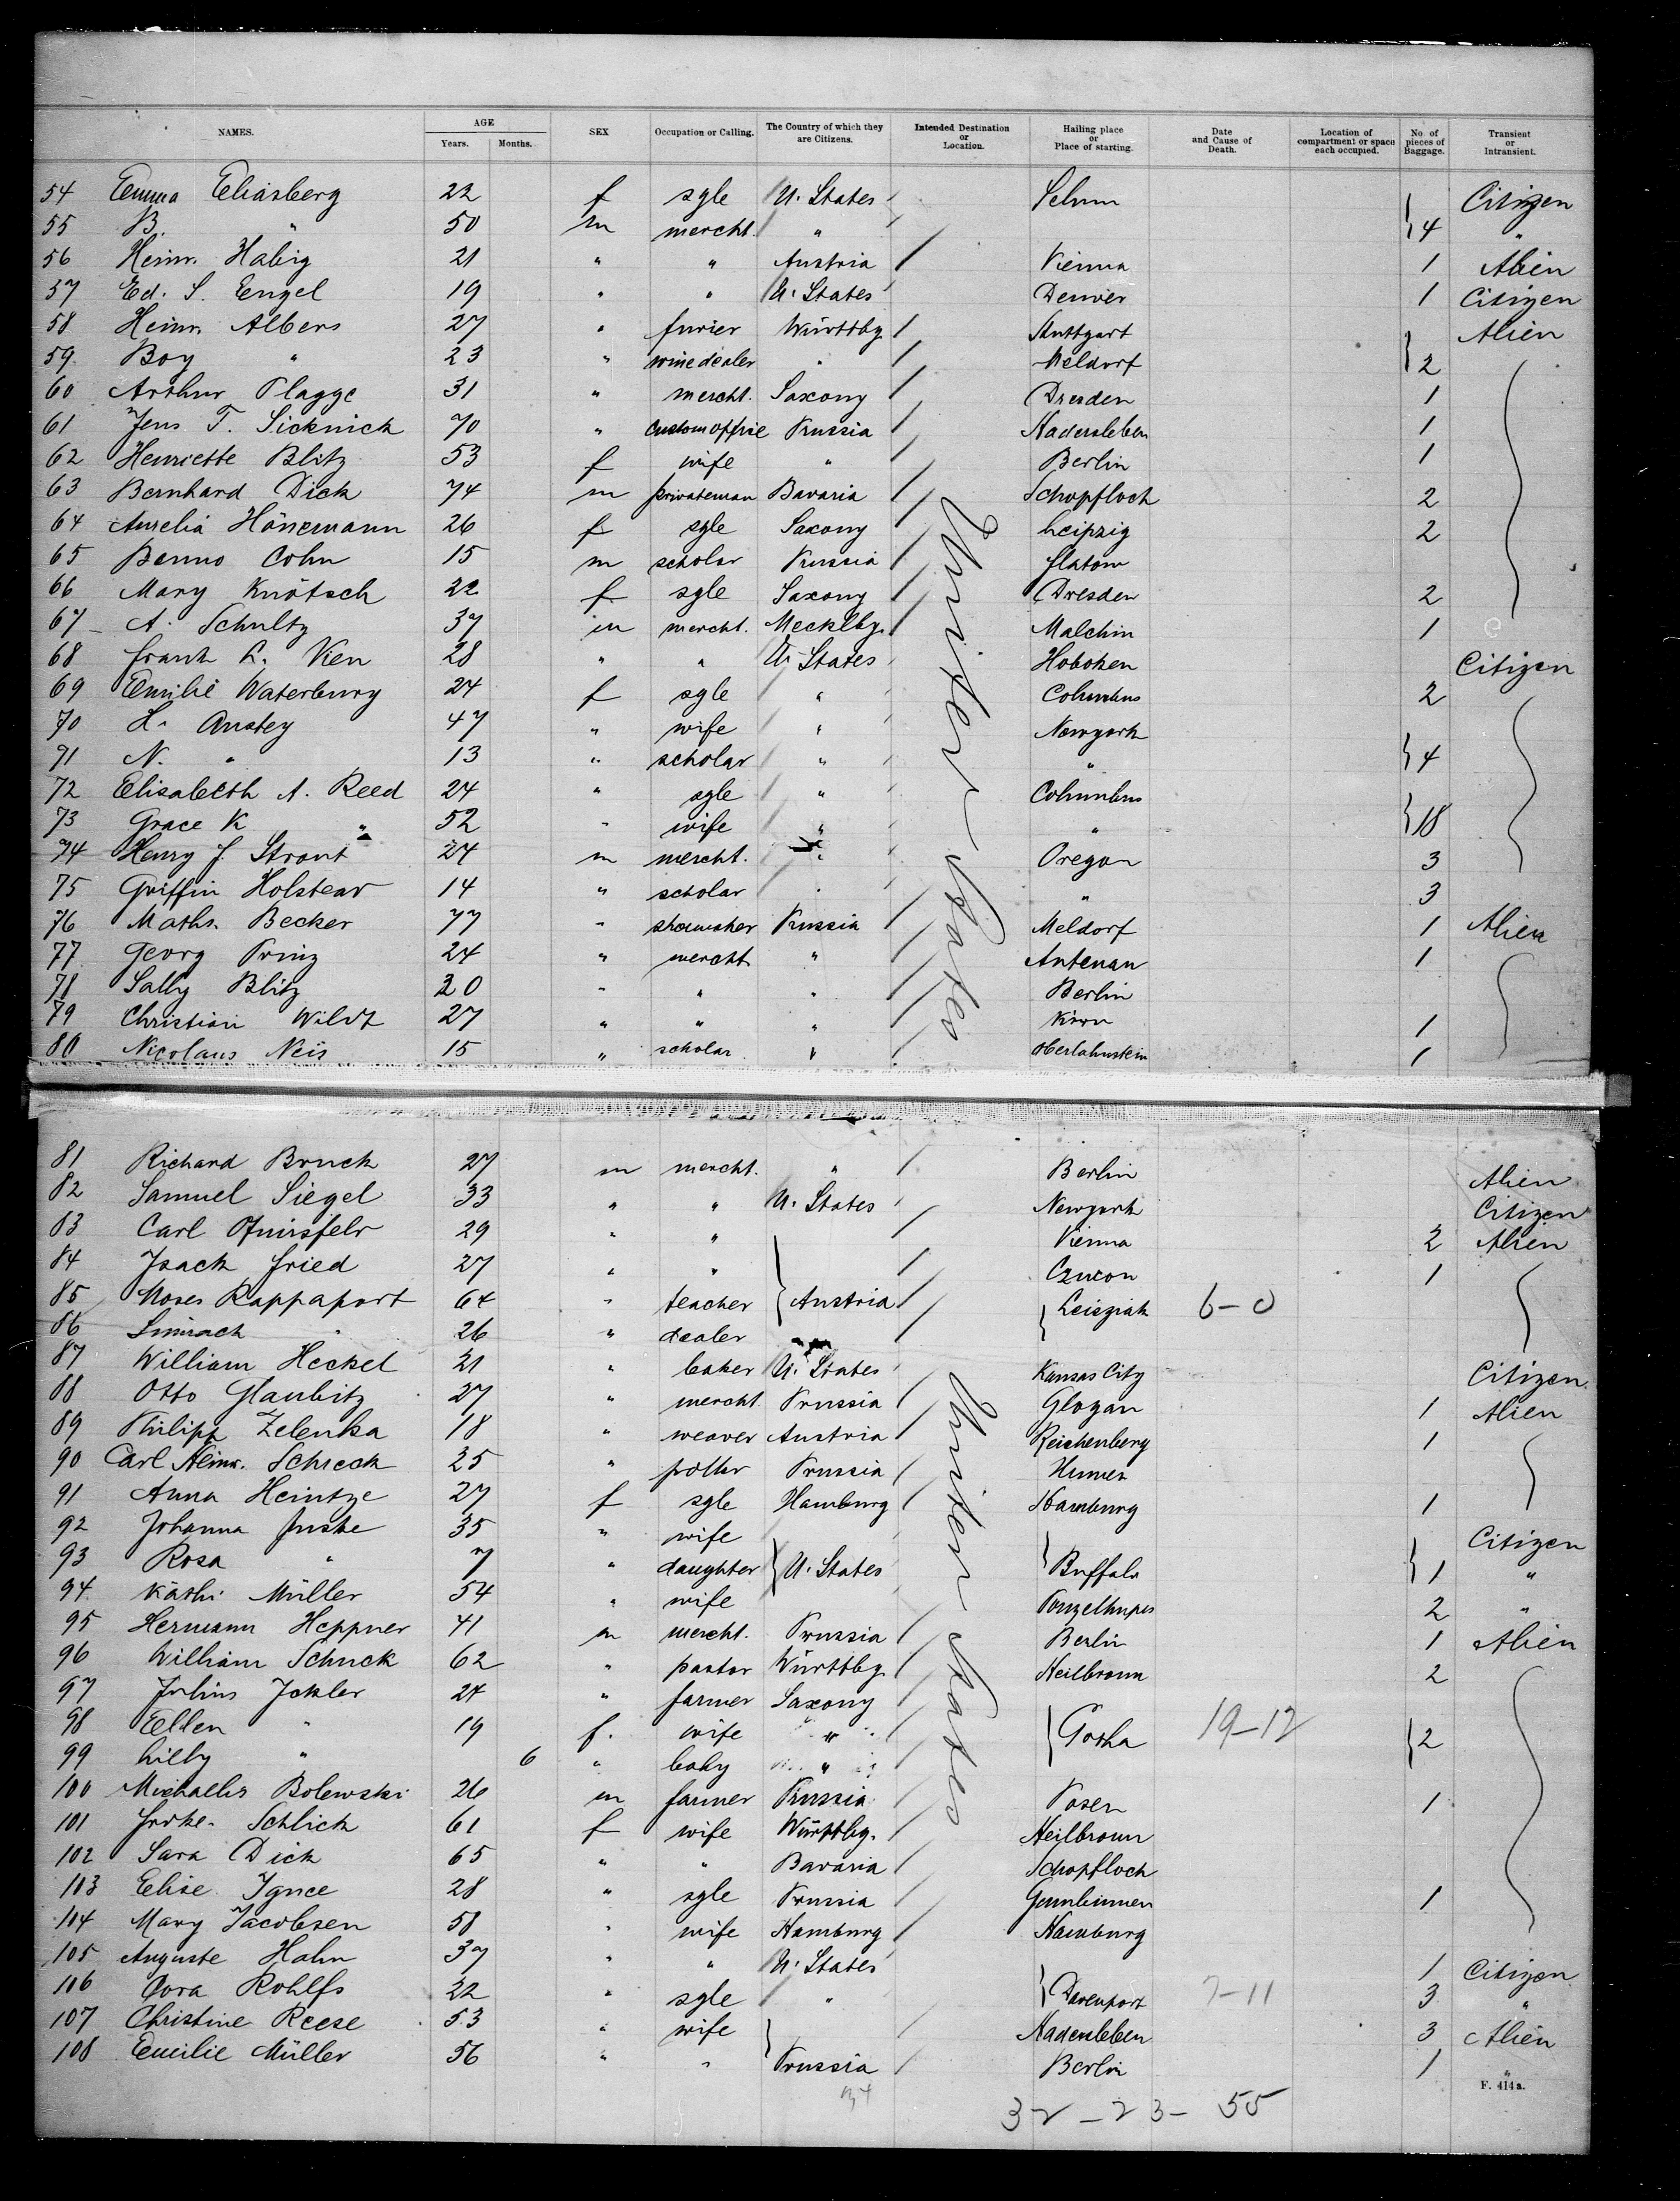 NAMES. AGE Years. Months. SEX Occupation or Calling. The Country of which they are Citizens. Intended Destination or Location. Hailing place or Place of starting. Date and Cause of Death. Location of compartment or space each occupied. No. of pieces of Baggage. Transient or Intransient.
54 Emma Eliasberg 22 f sgle U. States Selma Citizen
55 B. " 50 m mercht. " 4 "
56 Heinr. Habig 21 " " Austria Vienna 1 Alien
57 Ed. S. Engel 19 " " U. States Denver 1 Citizen
58 Heinr. Albers 27 " furier Württbg. Stuttgart Alien
59 Boy " 23 " winedealer " Meldorf 2
60 Arthur Plagge 31 " mercht. Saxony Dresden 1
61 Jens T. Sicknick 70 " Prussia Hadersleben 1
62 Henriette Blitz 53 f wife " Berlin 1
63 Bernhard Dick 74 m privateman Bavaria Schopfloch 2
64 Aurelia Hönemann 26 f sgle Saxony Leipzig 2
65 Benno Cohn 15 m scholar Prussia flatow
66 Mary Knötsch 22 f sgle Saxony Dresden 2
67 A. Schultz 37 m mercht. Mecklbg. Malchin 1
68 Frank L. Ken 28 " " U. States Hoboken Citizen
69 Emilie Waterbury 24 f sgle " Columbus 2
70 L. Anstey 47 " wife " Newyork
71 N. " 13 " scholar " " 4
72 Elisabeth A. Reed 24 " sgle " Columbus
73 Grace K " 52 " wife " " 18
74 Henry J. Strout 24 m mercht. " Oregon 3
75 Griffin Holstear 14 " scholar " " 3
76 Maths. Becker 77 " Prussia Meldorf 1 Alien
77 Georg Prinz 24 " mercht. " Antenau 1
78 Sally Blitz 20 " " " Berlin
79 Christian Wildt 27 " " " 1
80 Nicolaus Neis 15 " scholar " 1
United States
81 Richard Bruck 27 m mercht. " Berlin Alien
82 Samuel Siegel 33 " " U. States Newyork Citizen
83 Carl 29 " " Vienna 2 Alien
84 Isack Fried 27 " " 1
85 Moses Rappaport 64 " teacher Austria 6-0
86 " 26 " dealer
87 William Heckel 21 " baker U. States Kansas City Citizen
88 Otto Glaubitz 27 " mercht. Prussia Glogau 1 Alien
89 Philipp Zelenka 18 " weaver Austria Reichenberg 1
90 Carl Heinr. Schreck 25 " potter Prussia
91 Anna Heintze 27 f sgle Hamburg Hamburg 1
92 Johanna Juske 35 " wife Citizen
93 Rosa " 7 " daughter U. States Buffalo 1 "
94 Käthi Müller 54 " wife 2 "
95 Hermann Heppner 41 m mercht. Prussia Berlin 1 Alien
96 William Schuck 62 " pastor Württbg. Heilbronn 2
97 Julius Ickler 24 " farmer Saxony
98 Ellen " 19 f. wife " Gotha 19-12 2
99 Lilly " 6 " baby "
100 Michaelis Bolewski 26 m farmer Prussia Posen 1
101 Schlick 61 f wife Württbg. Heilbronn
102 Sara Dick 65 " " Bavaria Schopfloch
103 Elise Ignee 28 " sgle Prussia Gumbinnen 1
104 Mary Jacobsen 58 " wife Hamburg Hamburg
105 Auguste Hahn 37 " " U. States 1 Citizen
106 Cora Rohlfs 22 " sgle " Davenport 7-11 3 "
107 Christine Reese 53 " wife Hadersleben 3 Alien
108 Emilie Müller 56 " " Prussia Berlin 1 "
United States
F. 414a.
32-23-55